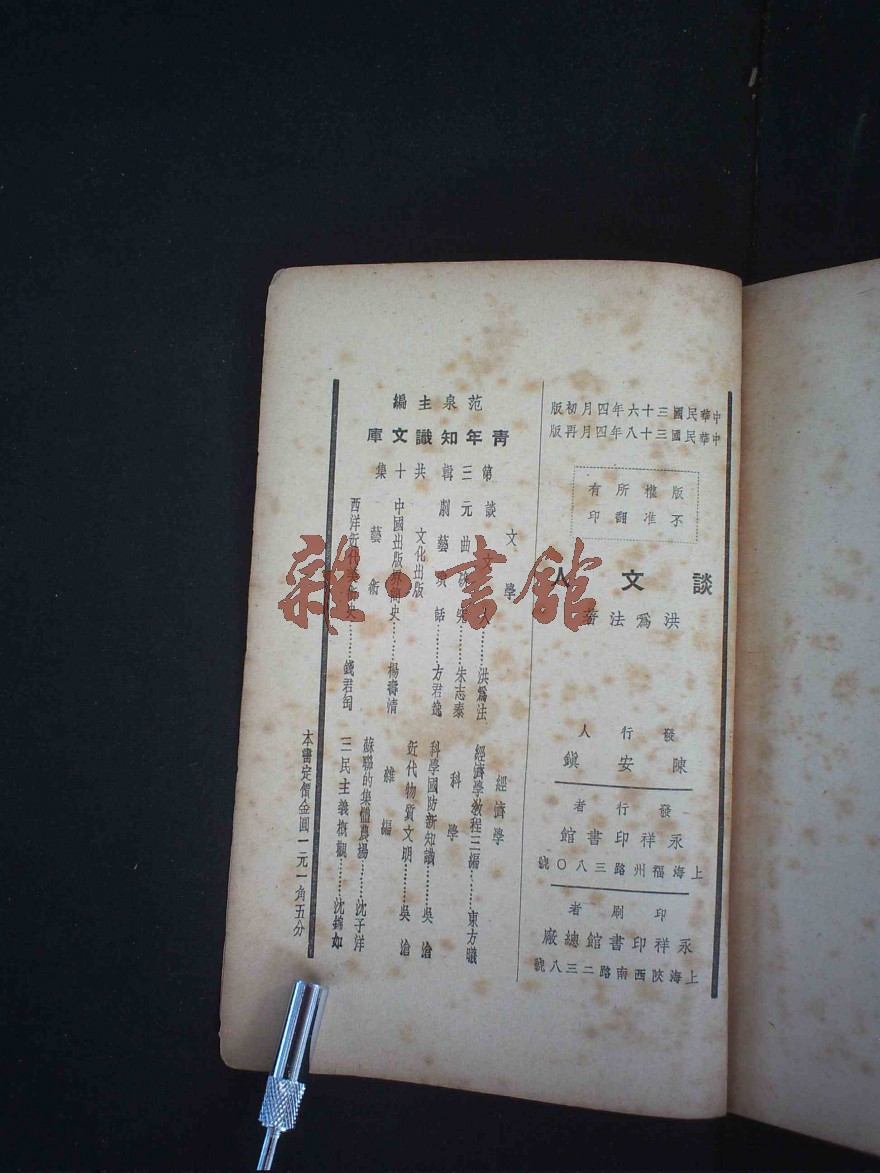 中華民國三十六年四月初版
中華民國三十八年四月再版
版權所有
不准翻印
談文人
洪為法著
發行人
陳安鎮
發行者
永祥印書館
上海福州路三八〇號
印刷者
永祥印書館總廠
上海陝西南路二三八號
范泉主編
青年知識文庫
第三輯共十集
文學
談文人………洪為法
元曲……朱志泰
劇藝瑣話………方君逸
文化出版
中國出版界簡史………楊壽清
藝術
西洋近代美術史………錢君匋
經濟學
經濟學教程三編………東方曦
科學
科學國防新知識………吳滄
近代物質文明………吳滄
雜編
蘇聯的集體農場………沈子洋
三民主義概觀………沈錦如
本書定價金圓一元一角五分
雜·書館